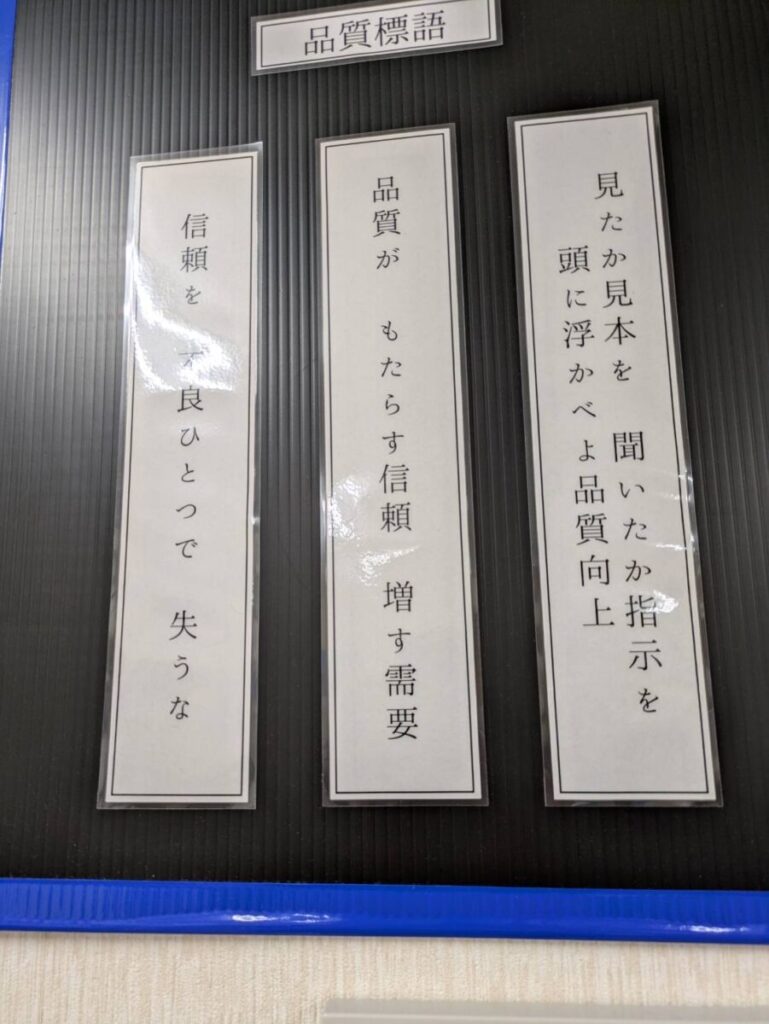 品質標語
見たか見本を 聞いたか指示を
頭に浮かべよ品質向上
品質が もたらす信頼 増す需要
信頼を 不良ひとつで 失うな